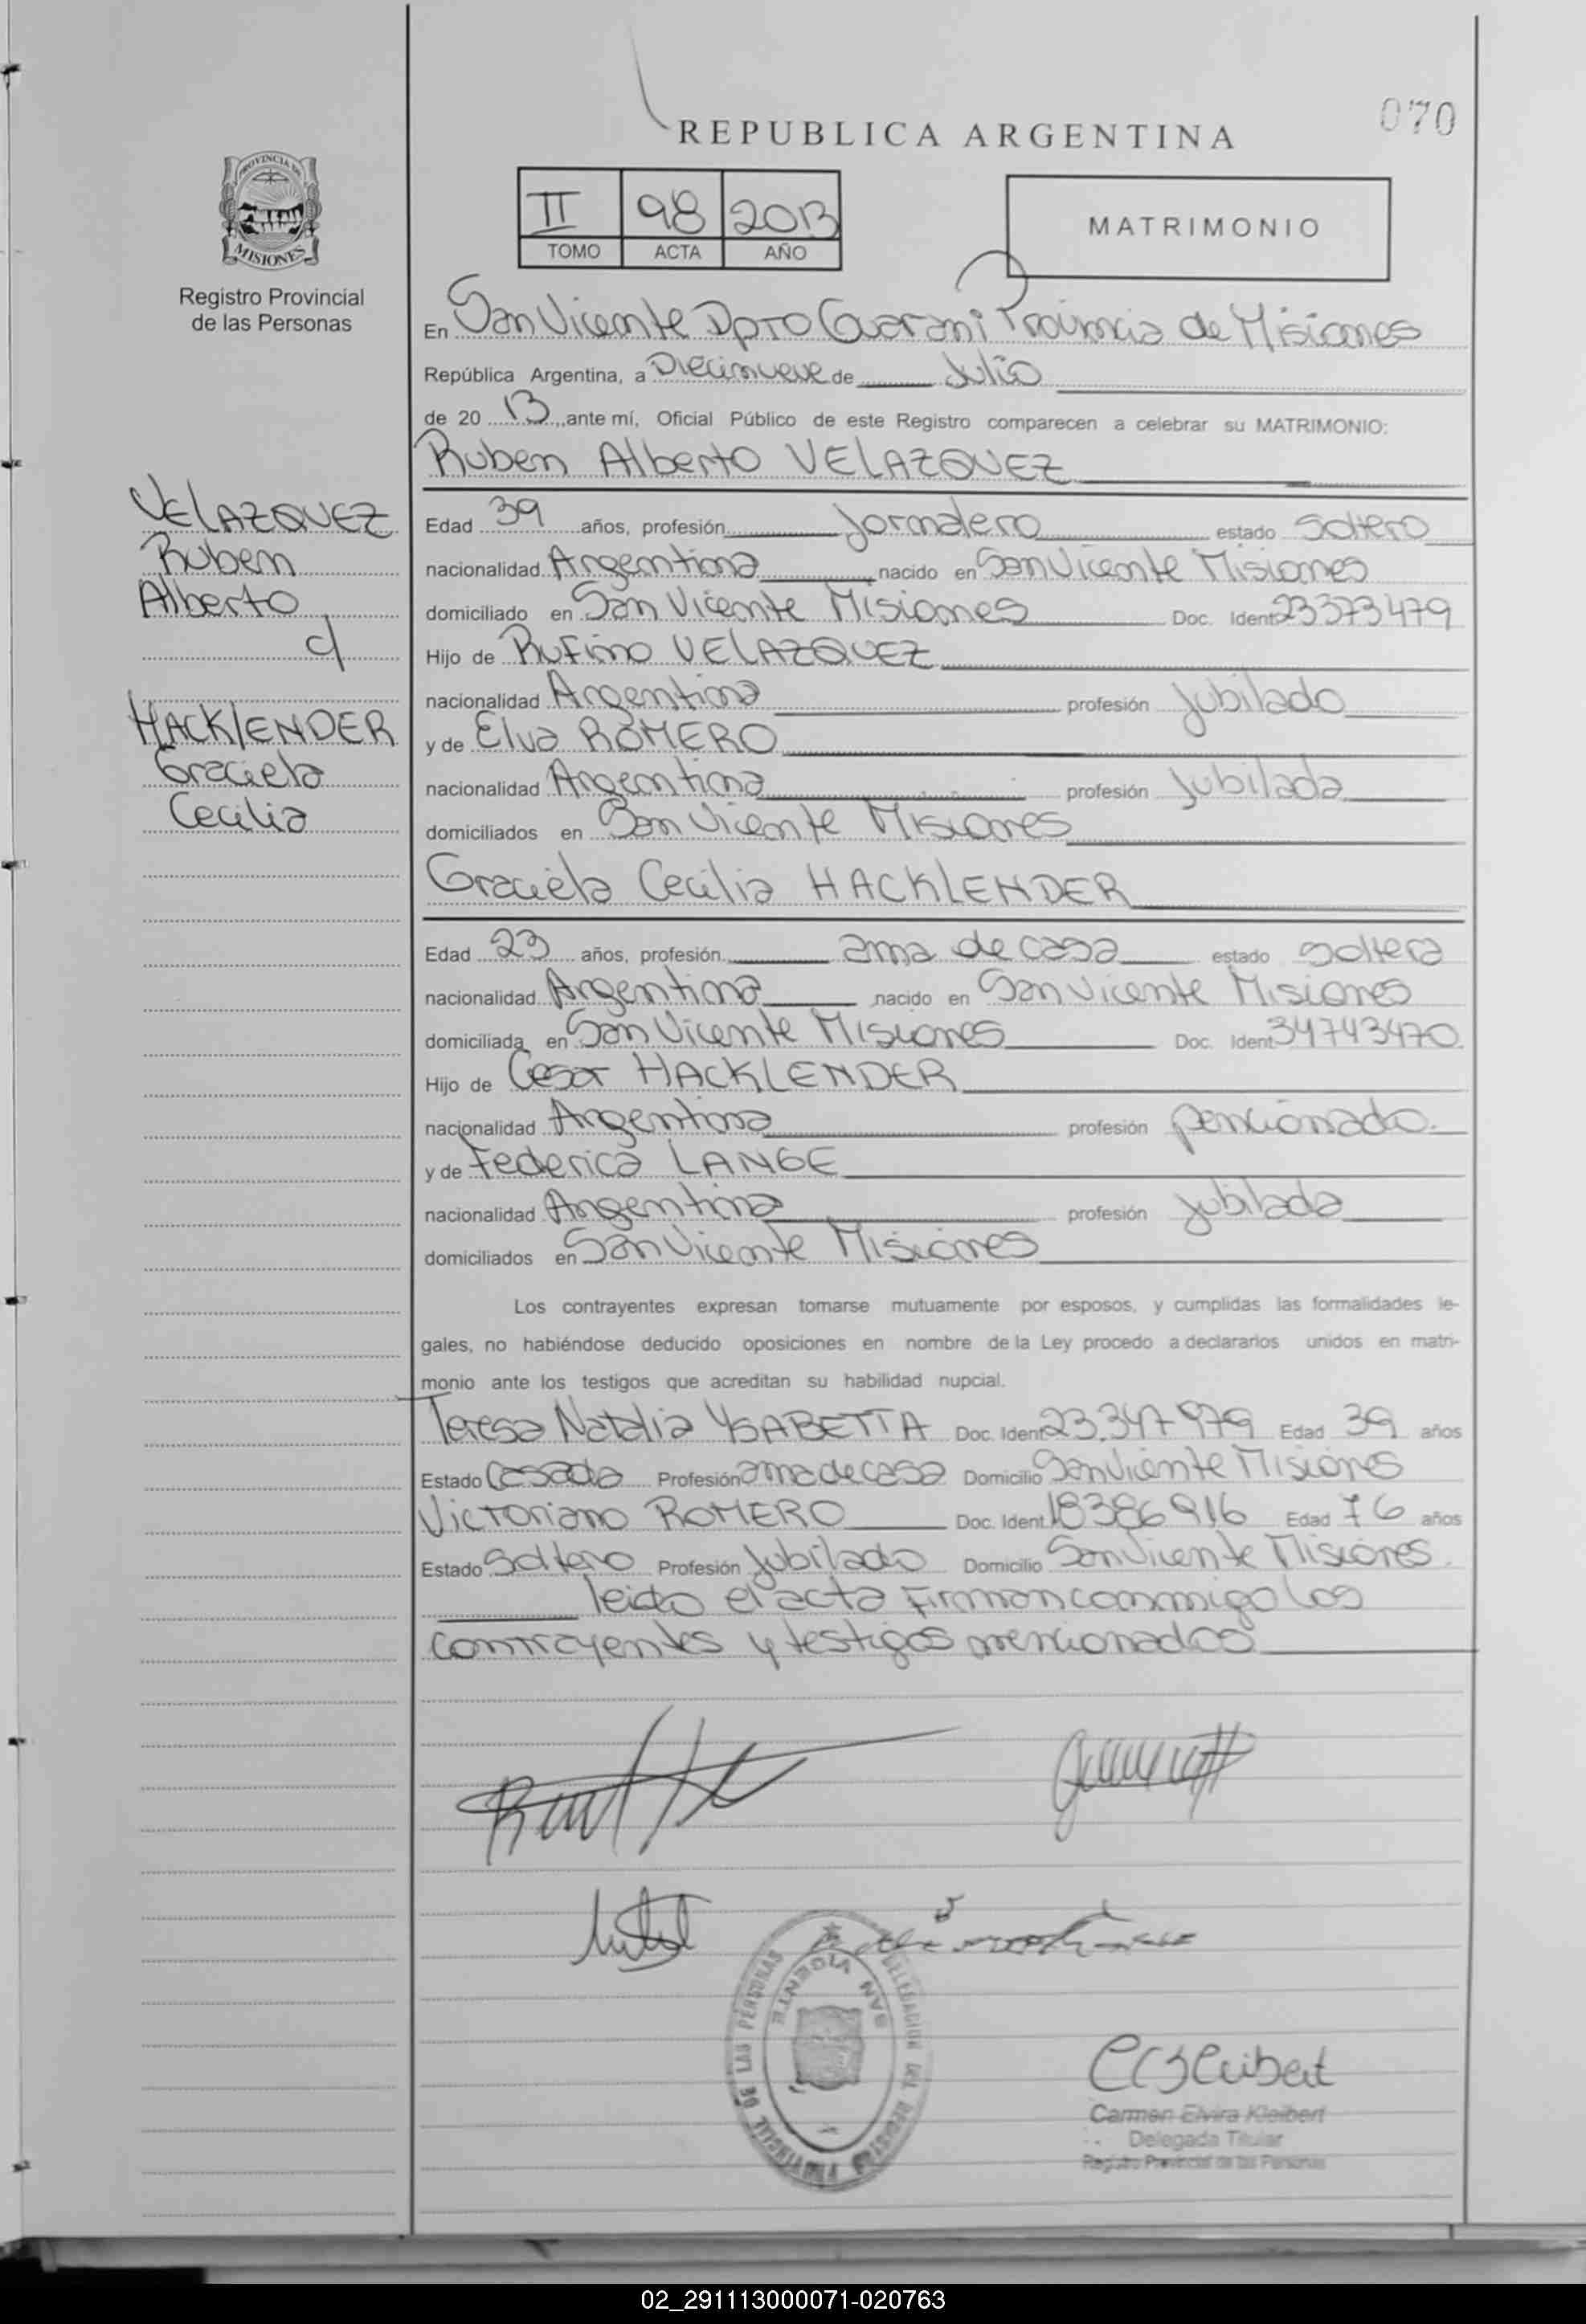 070
REPUBLICA ARGENTINA
PROVINCIA DE
MISIONES
Registro Provincial
de las Personas
II 98 2013
TOMO ACTA AÑO
MATRIMONIO
En San Vicente Dpto Guarani Provincia de Misiones
República Argentina, a Diecinueve de Julio
de 20 13, ante mí, Oficial Público de este Registro comparecen a celebrar su MATRIMONIO:
Ruben Alberto VELAZQUEZ
VELAZQUEZ
Ruben
Alberto
c/
HACKLENDER
Graciela
Cecilia
Edad 39 años, profesión Jornalero estado Soltero
nacionalidad Argentina nacido en San Vicente Misiones
domiciliado en San Vicente Misiones Doc. Ident 23373479
Hijo de Rufino VELAZQUEZ
nacionalidad Argentina profesión Jubilado
y de Elva ROMERO
nacionalidad Argentina profesión Jubilada
domiciliados en San Vicente Misiones
Graciela Cecilia HACKLENDER
Edad 23 años, profesión ama de casa estado soltera
nacionalidad Argentina nacido en San Vicente Misiones
domiciliada en San Vicente Misiones Doc. Ident 34743470
Hijo de Cesar HACKLENDER
nacionalidad Argentina profesión pencionado.
y de Federica LANGE
nacionalidad Argentina profesión Jubilada
domiciliados en San Vicente Misiones
Los contrayentes expresan tomarse mutuamente por esposos, y cumplidas las formalidades le-
gales, no habiéndose deducido oposiciones en nombre de la Ley procedo a declararlos unidos en matri-
monio ante los testigos que acreditan su habilidad nupcial.
Teresa Natalia YSABETTA Doc. Ident 23.347979 Edad 39 años
Estado Casada Profesión ama de casa Domicilio San Vicente Misiones
Victoriano ROMERO Doc. Ident. 18386916 Edad 76 años
Estado Soltero Profesión Jubilado Domicilio San Vicente Misiones.
leido el acta Firman conmigo los
contrayentes y testigos mencionados
DELEGACION DEL REGISTRO PROVINCIAL DE LAS PERSONAS
SAN VICENTE
Carmen Elvira Kleibert
Delegada Titular
Registro Provincial de las Personas
02_291113000071-020763